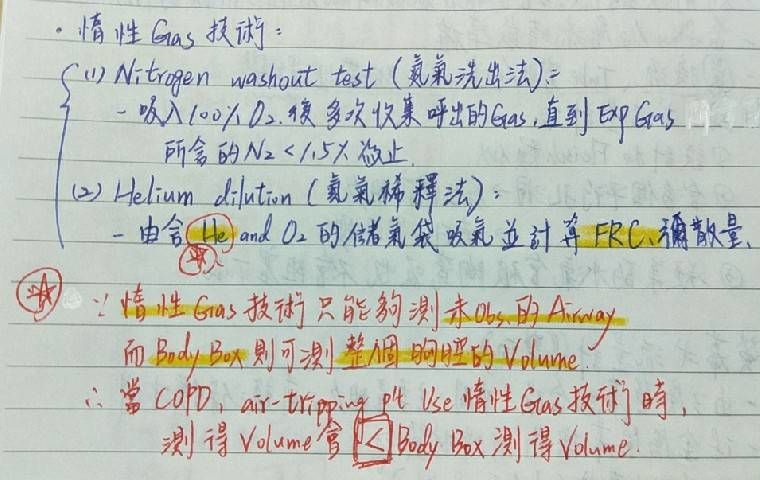 · 惰性 Gas 技術:
(1) Nitrogen washout test (氮氣洗出法):
- 吸入100% O₂ 後多次收集呼出的Gas, 直到 Exp Gas
所含的N₂ < 1.5% 為止.
(2) Helium dilution (氦氣稀釋法):
- 由含 He and O₂ 的儲氣袋吸氣並計算 FRC、瀰散量.
∵ 惰性 Gas 技術只能夠測未Obs.的 Airway
而 Body Box 則可測整個胸腔的 Volume.
∴ 當 COPD, air-tripping pt Use 惰性 Gas 技術時,
測得 Volume 會 < Body Box 測得 Volume.